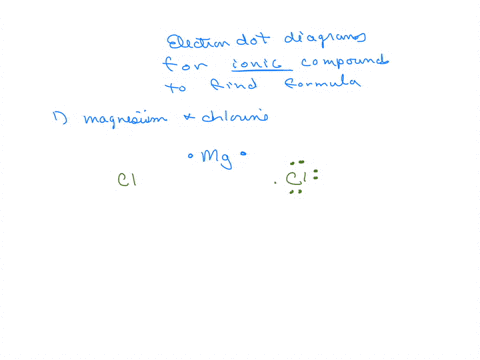 Electron dot diagrams
for ionic compounds
to find formula
1) magnesium & chlorine
• Mg •
Cl . Cl